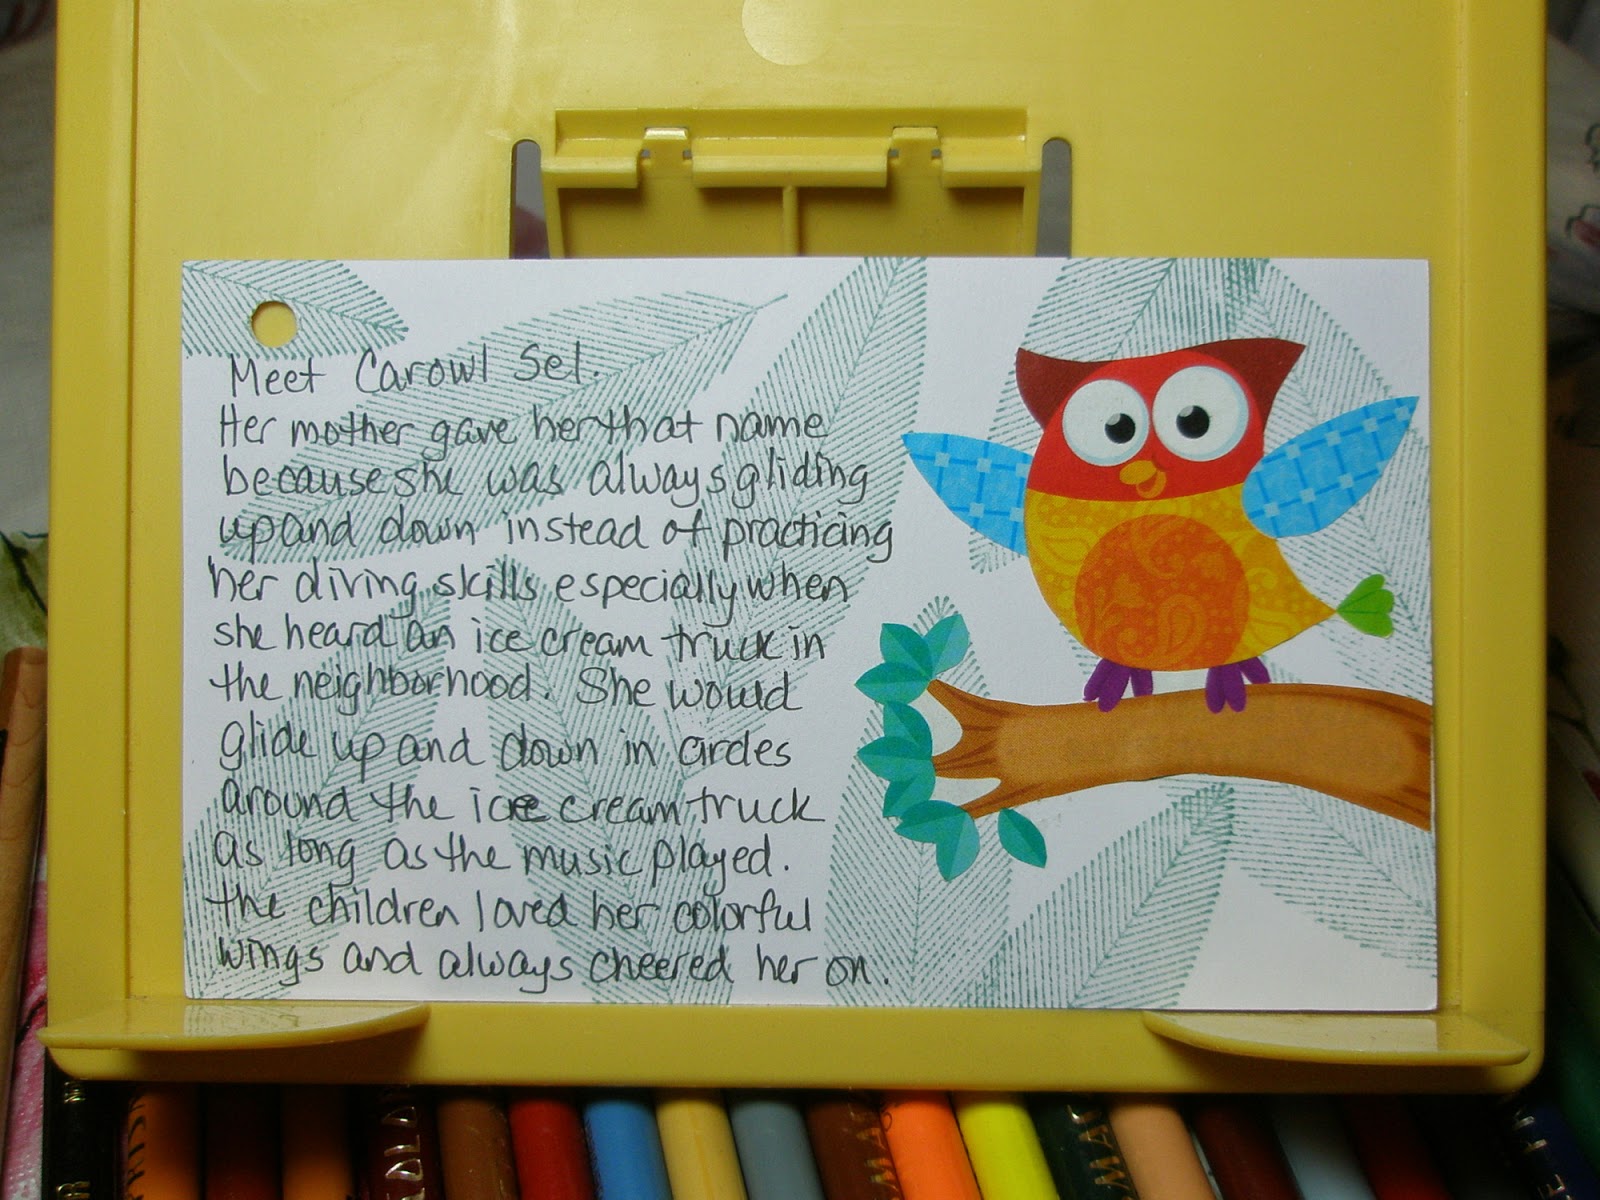 Meet Carowl Sel.
Her mother gave her that name
because she was always gliding
up and down instead of practicing
her diving skills especially when
she heard an ice cream truck in
the neighborhood. She would
glide up and down in circles
around the ice cream truck
as long as the music played.
the children loved her colorful
wings and always cheered her on.